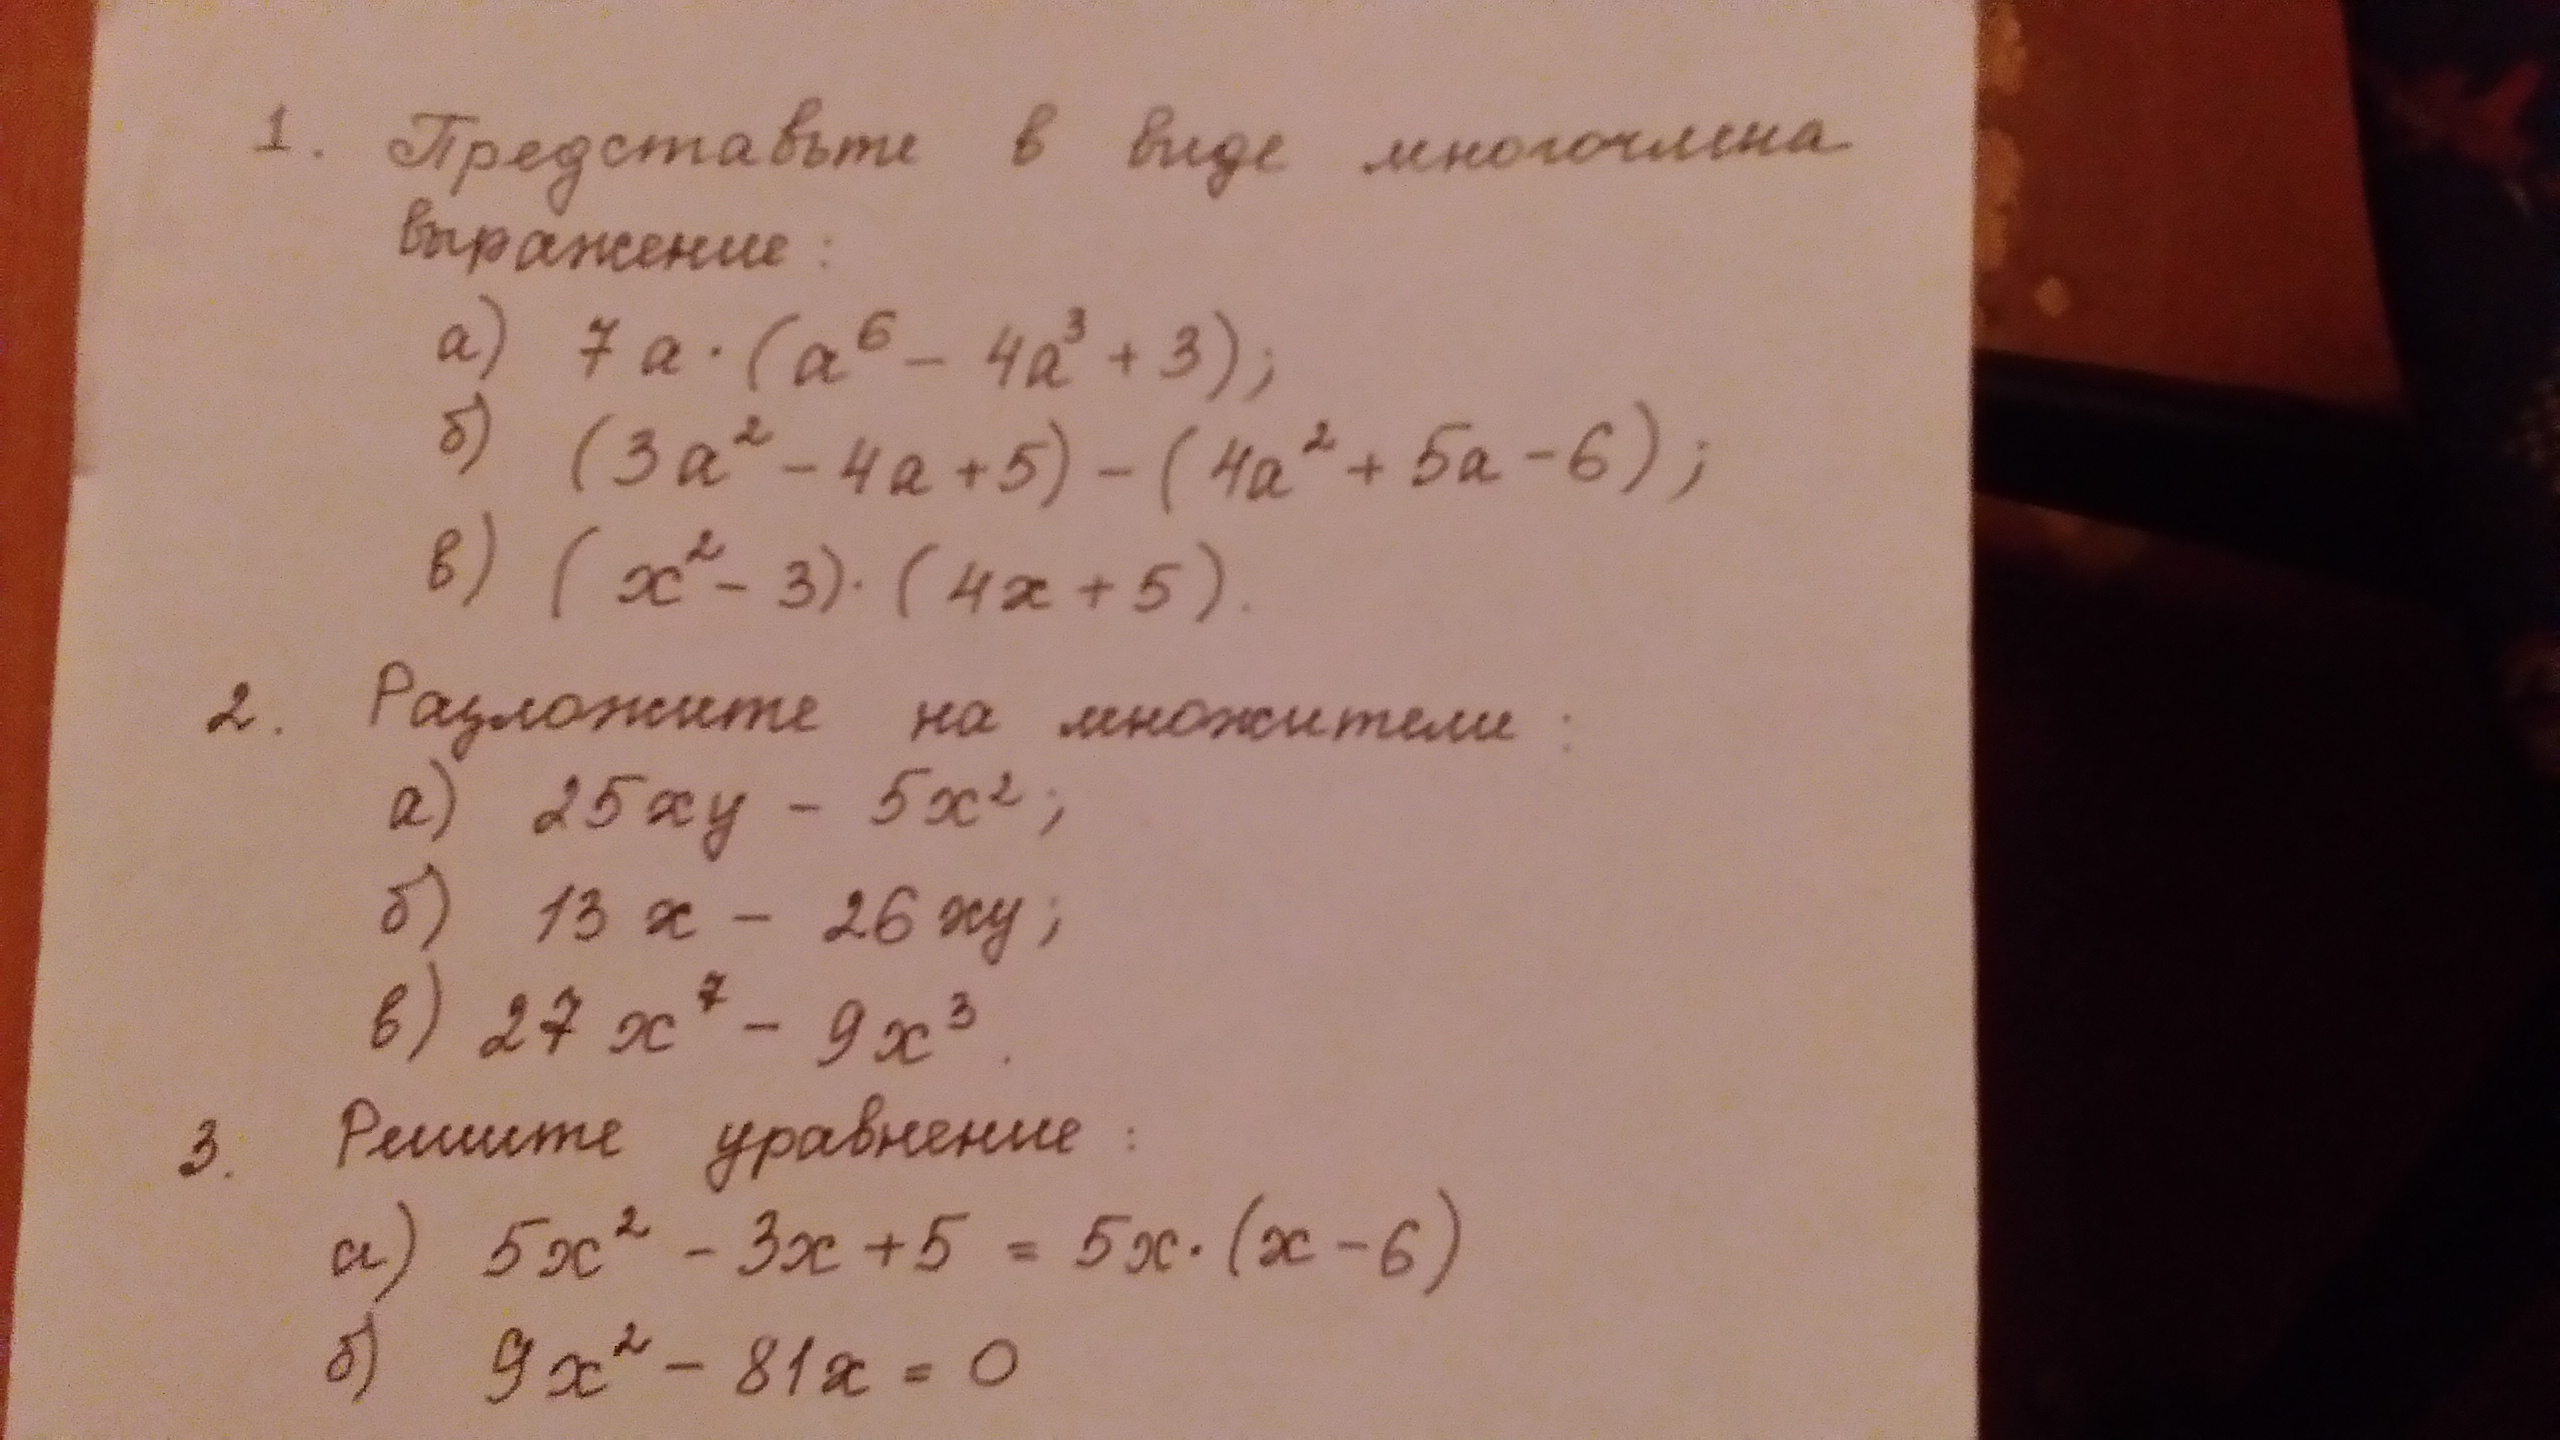 1. Представьте в виде многочлена
выражение:
а) 7a·(a⁶ - 4a³ + 3);
б) (3a² - 4a + 5) - (4a² + 5a - 6);
в) (x² - 3)·(4x + 5).
2. Разложите на множители:
а) 25xy - 5x²;
б) 13x - 26xy;
в) 27x⁷ - 9x³.
3. Решите уравнение:
а) 5x² - 3x + 5 = 5x·(x - 6)
б) 9x² - 81x = 0